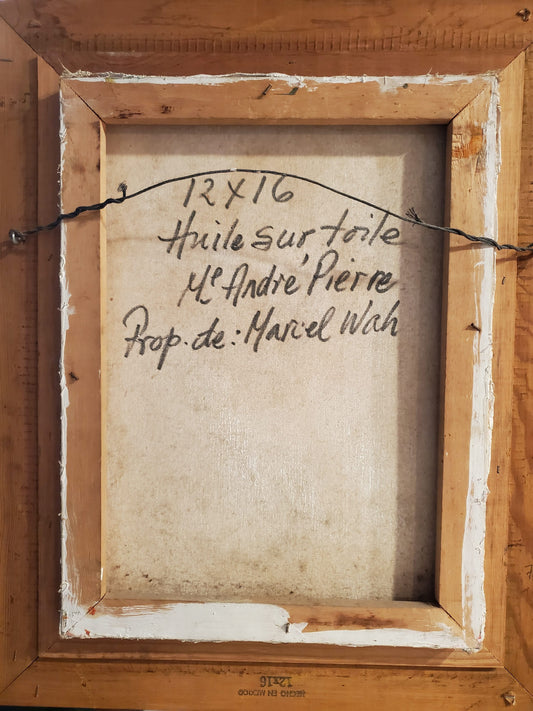 12 X 16
Huile sur toile
Me André Pierre
Prop. de: Marcel Wah
HECHO EN MEXICO
12x16